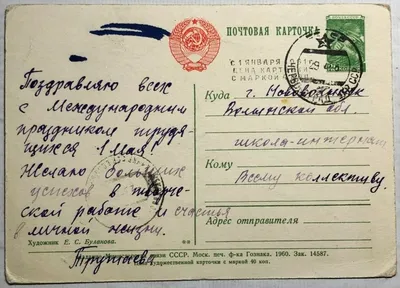 ПОЧТОВАЯ КАРТОЧКА
С 1 ЯНВАРЯ
ЦЕНА КАРТ
С МАРКОЙ
Куда г. Нововолынск
Волынской обл.
школа-интернат
Кому
Всему коллективу.
Адрес отправителя
Поздравляю всех
с Международным
праздником трудя-
щихся 1 Мая!
Желаю больших
успехов в творче-
ской работе и счастья
в личной жизни.
Художник Е. С. Буланова.
связи СССР. Моск. печ. ф-ка Гознака. 1960. Зак. 14587.
художественной карточки с маркой 40 коп.